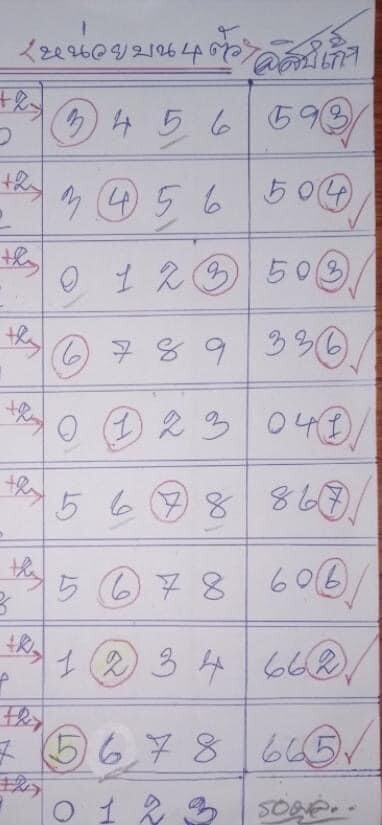 <หน่วยบน 4 ตัว>
+2 3 4 5 6 593
+2 3 4 5 6 504
+2 0 1 2 3 503
+2 6 7 8 9 336
+2 0 1 2 3 041
+2 5 6 7 8 867
+2 5 6 7 8 606
+2 1 2 3 4 662
+2 5 6 7 8 665
+2 0 1 2 3 รอผล..